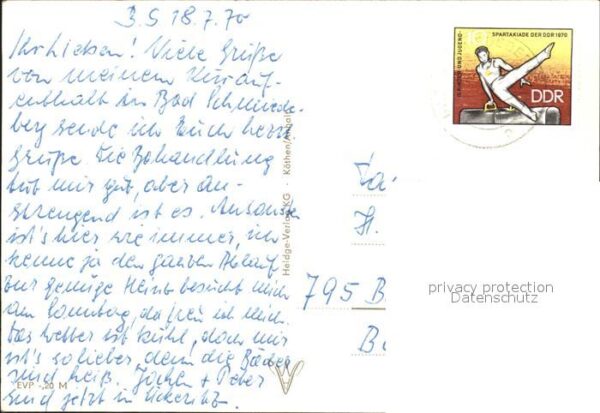 B.S 18.7.70
Ihr Lieben! Viele Grüße
von meinem Kurauf-
enthalt in Bad Schmiede-
berg sende ich Euch herzl.
Grüße. Die Behandlung
tut mir gut, aber an-
strengend ist es. Ansonsten
ist's hier wie immer, ich
kenne ja den ganzen Ablauf
zur Genüge. Heinz besucht mich
am Sonntag, da freu ich mich.
Das Wetter ist kühl, doch mir
ist's so lieber, denn die Bäder
sind heiß. Jochen + Peter
sind jetzt in Ückeritz.
EVP -,20 M
Heldge-Verlag KG · Köthen/Anhalt
KINDER- UND JUGEND-
SPARTAKIADE DER DDR 1970
10
DDR
Fa
H.
795 B
B
privacy protection
Datenschutz